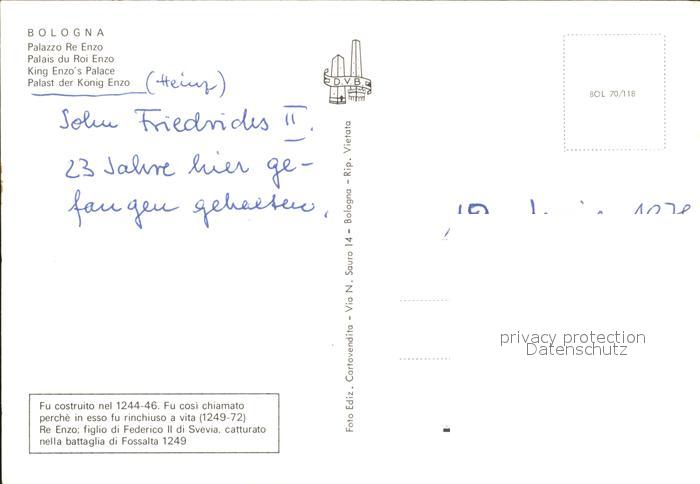 BOLOGNA
Palazzo Re Enzo
Palais du Roi Enzo
King Enzo's Palace
Palast der König Enzo
(Heinz)
Sohn Friedrichs II.
23 Jahre hier ge-
fangen gehalten.
D.V.B.
BOL 70/118
Foto Ediz. Cartovendita - Via N. Sauro 14 - Bologna - Rip. Vietata
privacy protection
Datenschutz
Fu costruito nel 1244-46. Fu così chiamato
perchè in esso fu rinchiuso a vita (1249-72)
Re Enzo; figlio di Federico II di Svevia, catturato
nella battaglia di Fossalta 1249